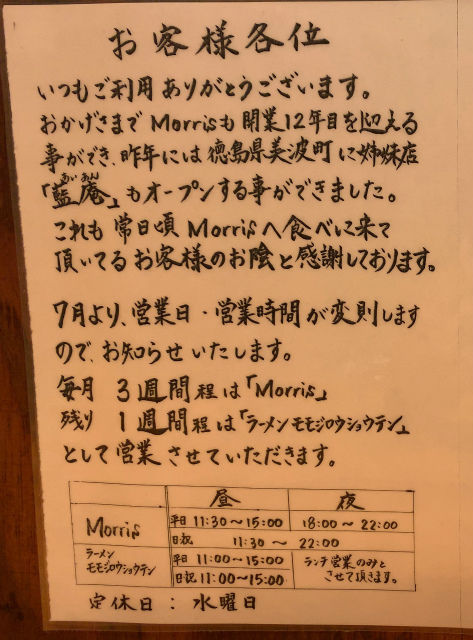 お客様各位
いつもご利用ありがとうございます。
おかげさまでMorrisも開業12年目を迎える
事ができ、昨年には徳島県美波町に姉妹店
「藍庵」もオープンする事ができました。
あいあん
これも常日頃Morrisへ食べに来て
頂いてるお客様のお陰と感謝しております。
7月より、営業日・営業時間が変則します
ので、お知らせいたします。
毎月 3週間程は「Morris」
残り 1週間程は「ラーメンモモジロウショウテン」
として営業させていただきます。
昼 夜
Morris 平日 11:30〜15:00 18:00〜22:00
日祝 11:30〜22:00
ラーメン
モモジロウショウテン 平日 11:00〜15:00 ランチ営業のみと
日祝 11:00〜15:00 させて頂きます。
定休日:水曜日